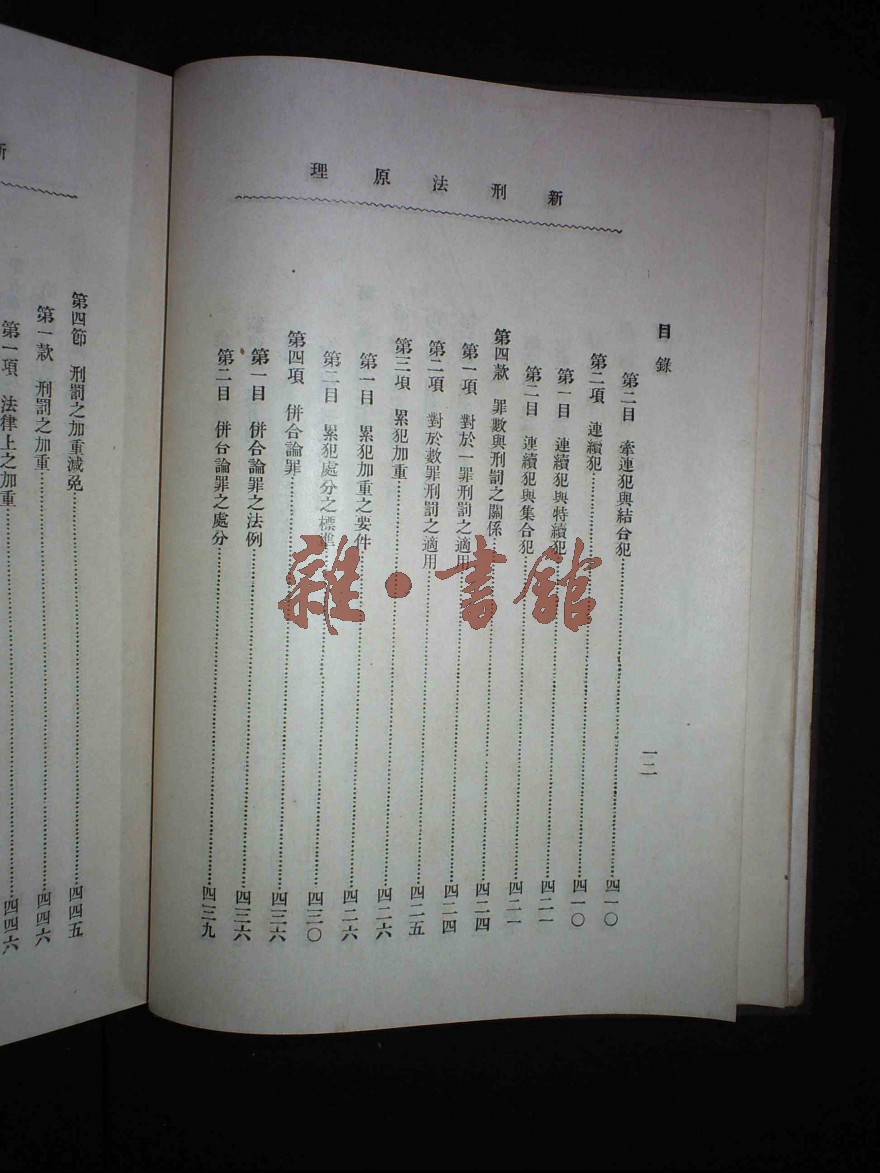 新刑法原理
目錄
一二
第二目 牽連犯與結合犯……四一〇
第二項 連續犯……四一〇
第一目 連續犯與特續犯……四二一
第二目 連續犯與集合犯……四二一
第四款 罪數與刑罰之關係……四二四
第一項 對於一罪刑罰之適用……四二四
第二項 對於數罪刑罰之適用……四二五
第三項 累犯加重……四二六
第一目 累犯加重之要件……四二六
第二目 累犯處分之標準……四三〇
第四項 併合論罪……四三六
第一目 併合論罪之法例……四三六
第二目 併合論罪之處分……四三九
新
第四節 刑罰之加重減免……四四五
第一款 刑罰之加重……四四六
第一項 法律上之加重……四四六
雜·書館